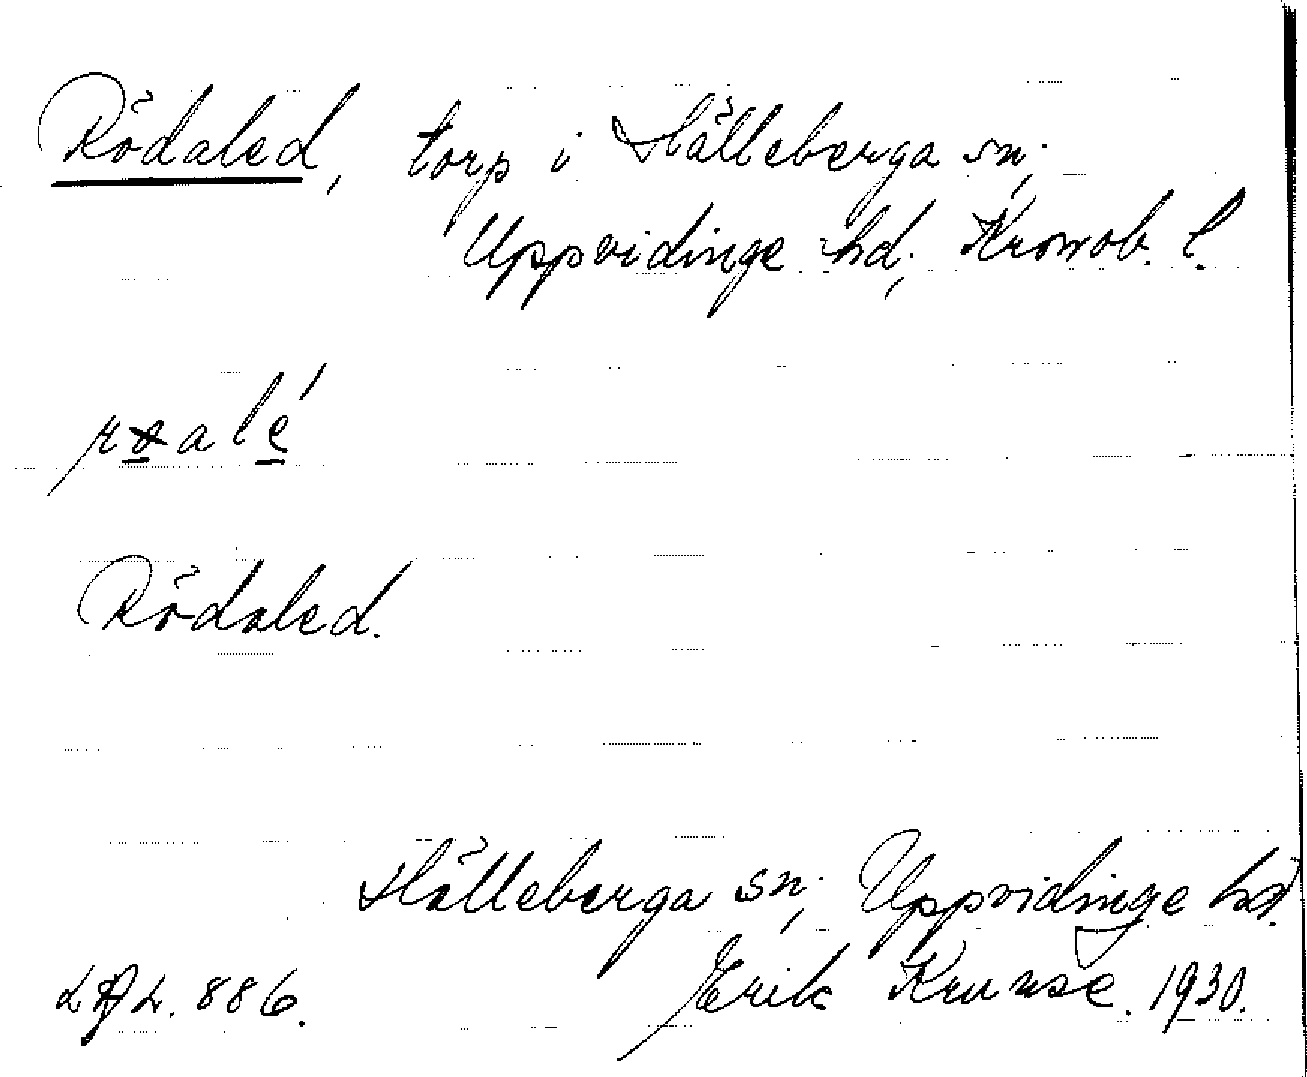 Rödaled, torp i Hälleberga sn;
Uppvidinge hd; Kronob. l.
Rödaled.
Hälleberga sn; Uppvidinge hd.
Erik Kruuse. 1930.